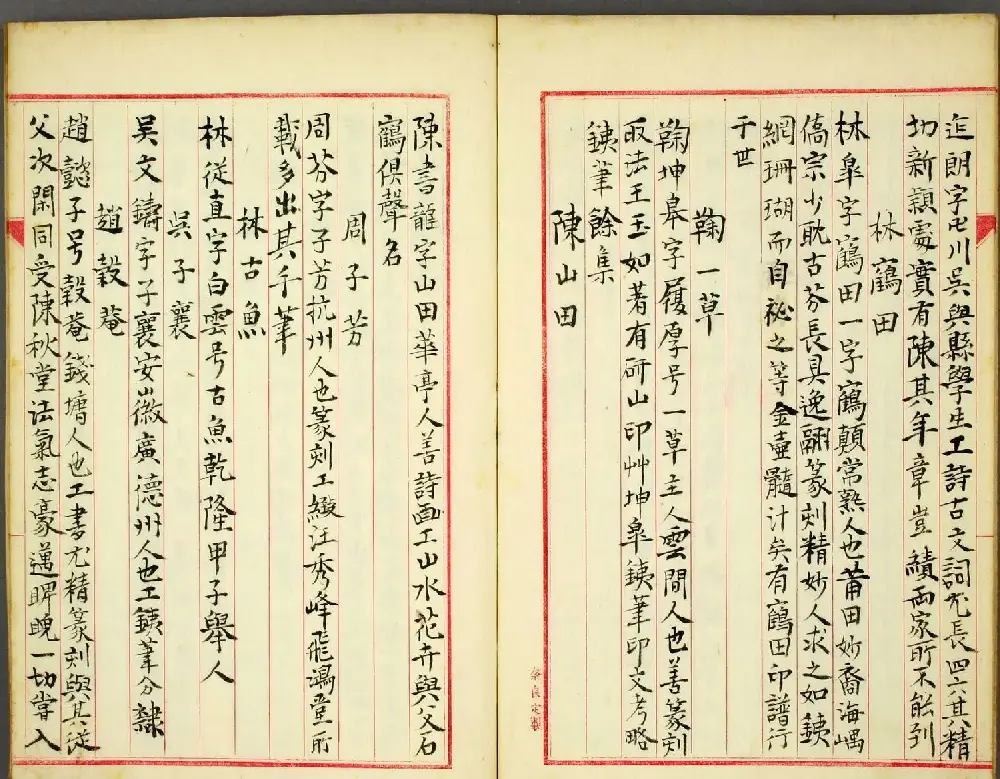 迮朗字卍川吳興縣學生工詩古文詞尤長四六其精
切新穎處實有陳其年章豈績兩家所不能到
林鶴田
林皐字鶴田一字鶴顛常熟人也莆田妙裔海嵎
僑宗少耽古芬長具逸翮篆刻精妙人求之如鐵
網珊瑚而自祕之等金壺髓汁矣有鶴田印譜行
于世
鞠一草
鞠坤皋字履厚号一草主人雲間人也善篆刻
取法王玉如著有研山印艸坤皋鐵筆印文考略
鐵筆餘集
陳山田
陳書龍字山田華亭人善詩画工山水花卉與父石
鶴俱聲名
周子芳
周芬字子芳杭州人也篆刻工緻汪秀峰飛鴻堂所
載多出其手筆
林古魚
林從直字白雲号古魚乾隆甲子舉人
吳子襄
吳文鑄字子襄安山徽廣德州人也工鐵筆分隸
趙穀菴
趙懿子号穀菴錢塘人也工書尤精篆刻與其從
父次閑同受陳秋堂法氣志豪邁睥睨一切嘗入
奈良定製